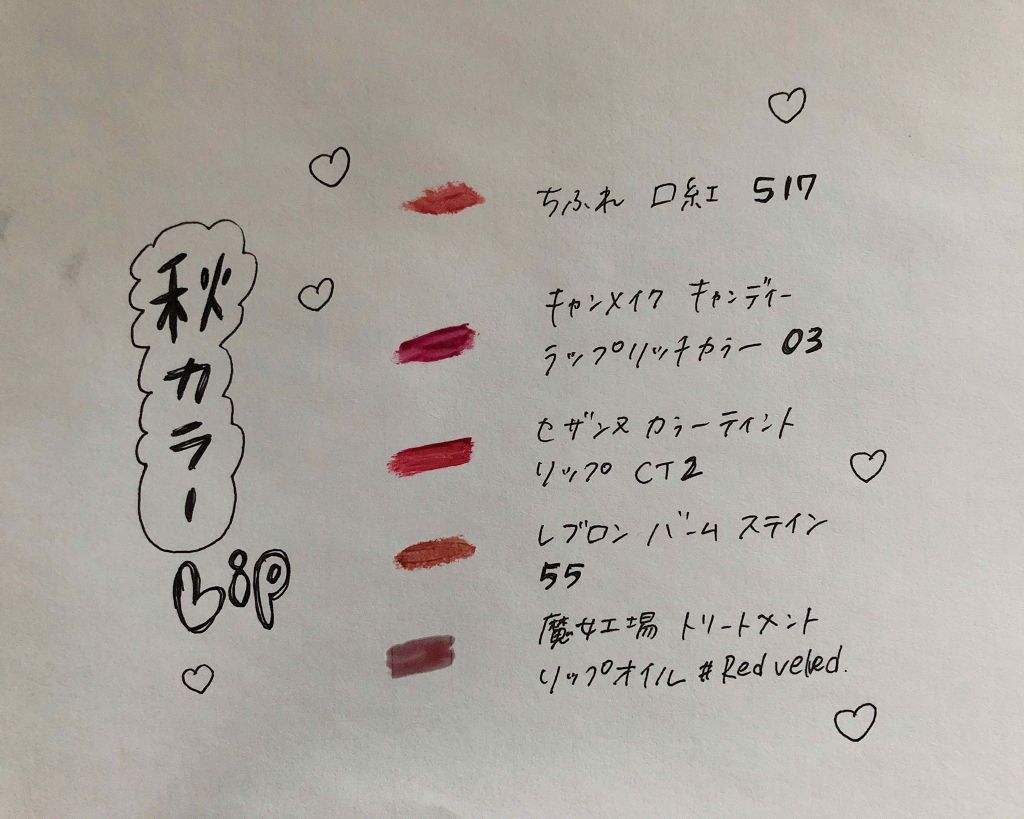 秋カラー
Lip
ちふれ 口紅 517
キャンメイク キャンディー
ラップリッチカラー 03
セザンヌ カラーティント
リップ CT2
レブロン バーム ステイン
55
魔女工場 トリートメント
リップオイル #Red velved.